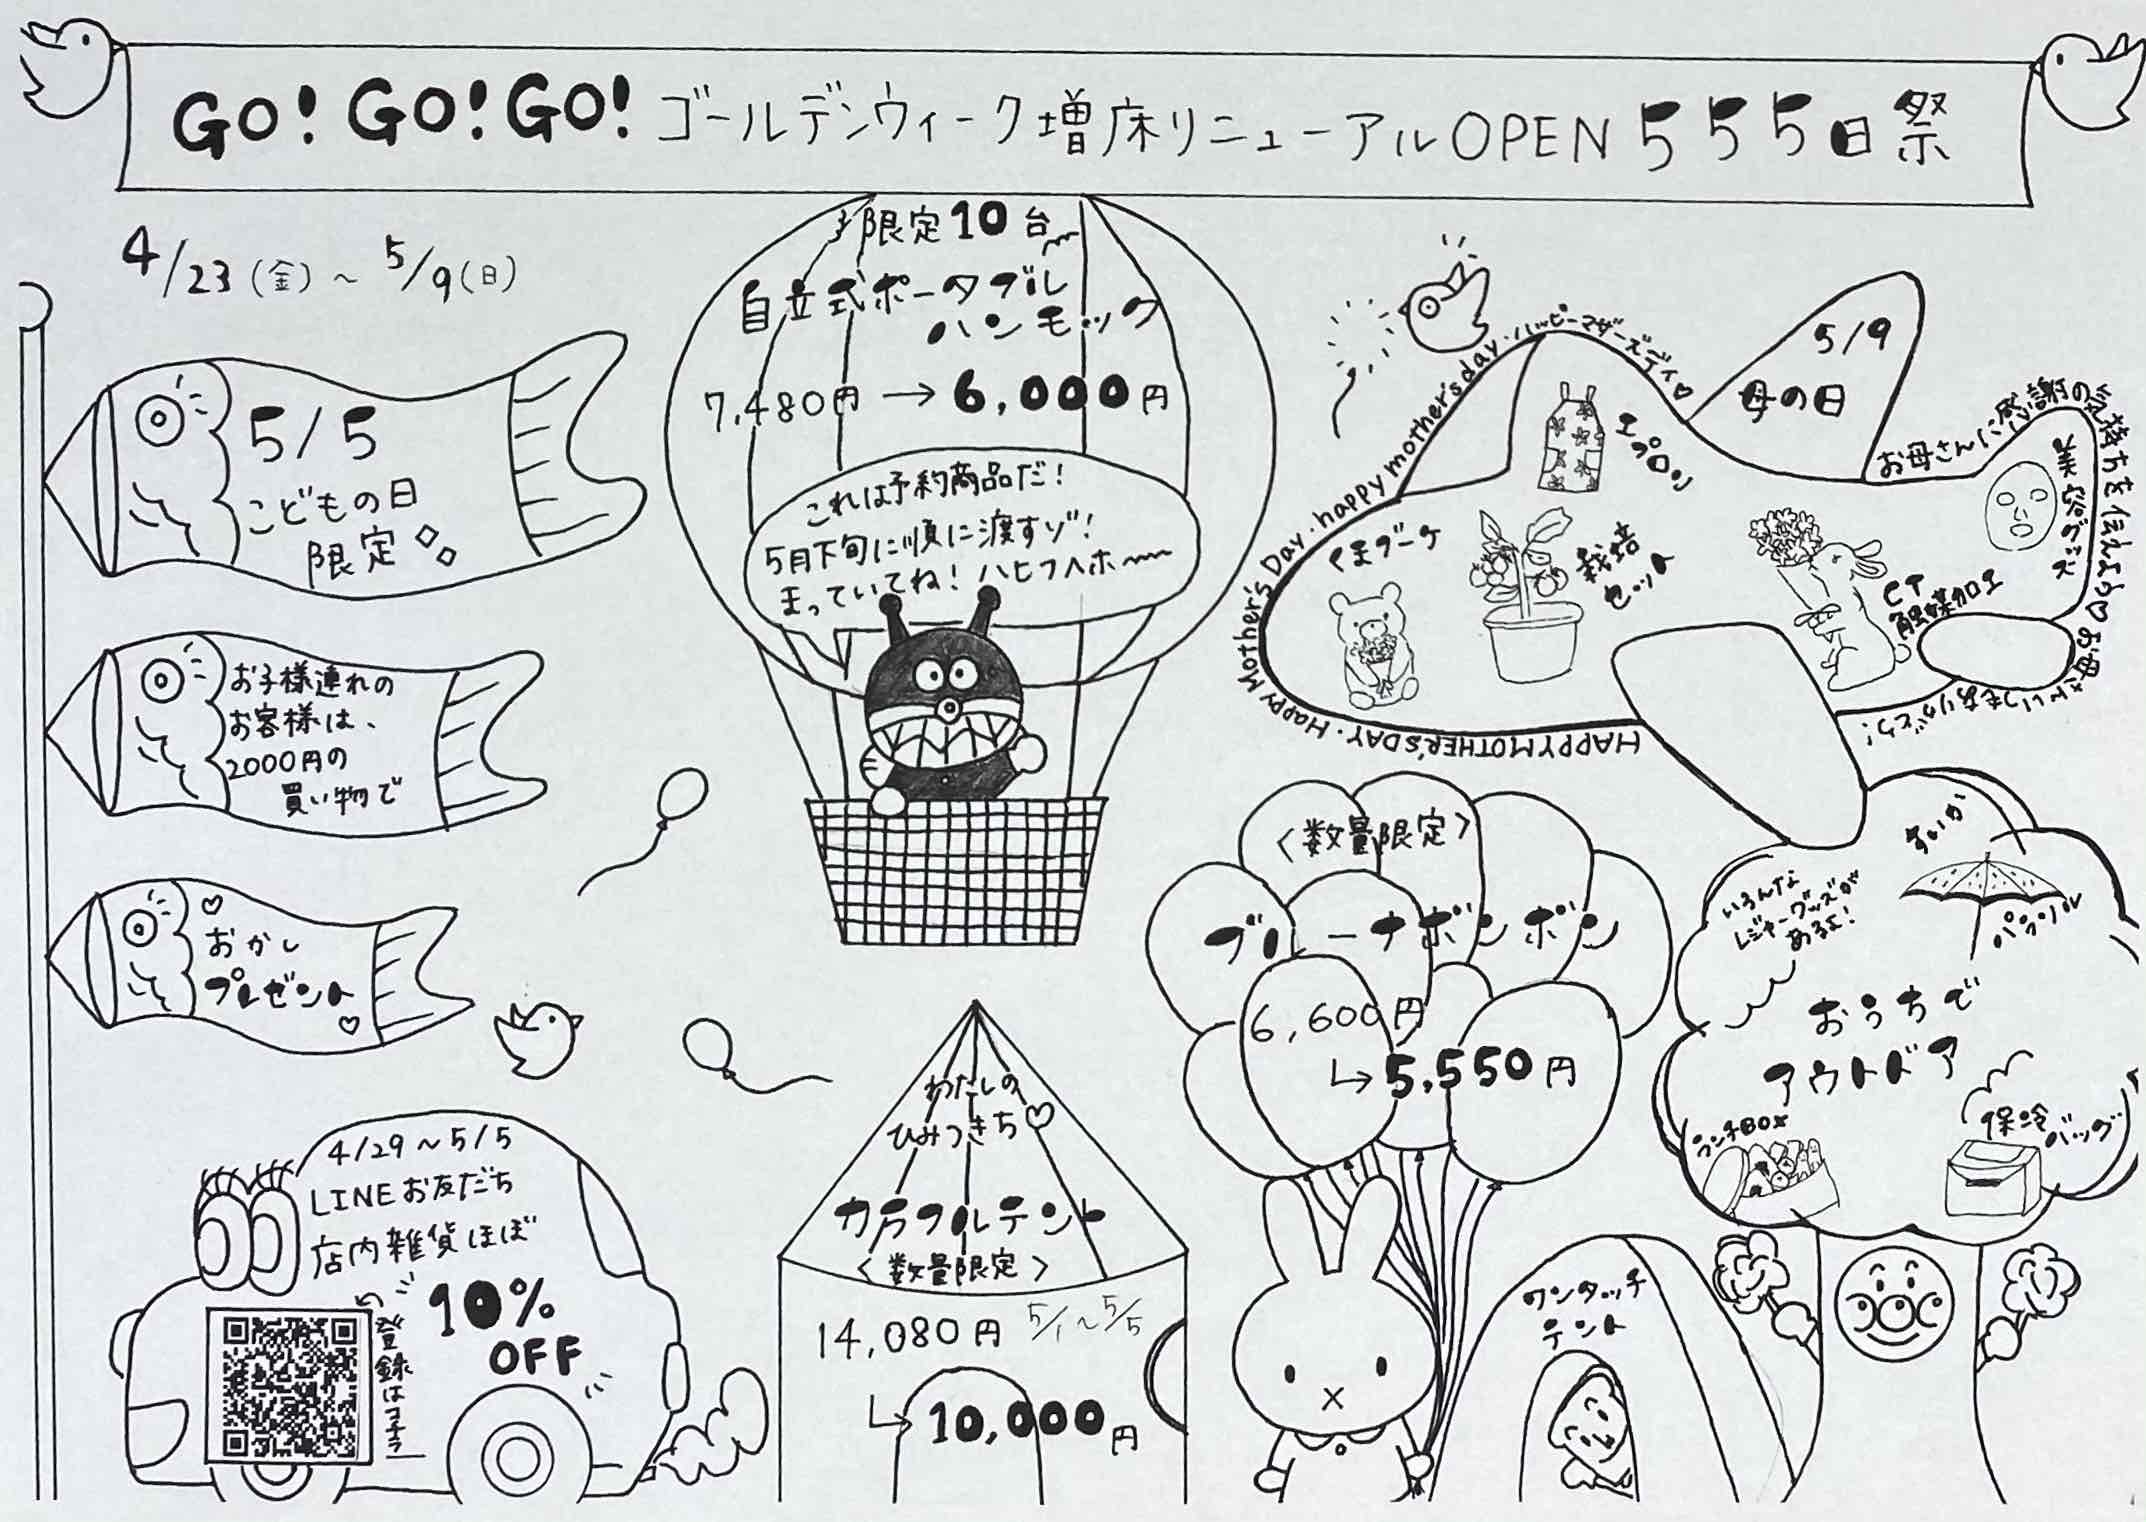 GO! GO! GO! ゴールデンウィーク増床リニューアルOPEN 555日祭
4/23(金)~5/9(日)
5/5
こどもの日
限定
お子様連れの
お客様は、
2000円の
買い物で
おかし
プレゼント
限定10台
自立式ポータブル
ハンモック
7,480円→6,000円
これは予約商品だ!
5月下旬に順に渡すゾ!
まっていてね!ハヒフヘホ〜
5/9
母の日
Happy Mother's Day. happy mother's day. ハッピーマザーズデイ♡
お母さんに感謝の気持ちを伝えよう♡お母さんいつもありがとう!
HAPPY MOTHER'S DAY.
エプロン
くまブーケ
栽培
セット
CT
触媒加工
美容グッズ
<数量限定>
ブルーナボンボン
6,600円
↳5,550円
すいか
パラソル
いろんな
レジャーグッズが
あるよ!
おうちで
アウトドア
ランチBOX
保冷
バッグ
ワンタッチ
テント
わたしの
ひみつきち♡
カラフルテント
<数量限定>
14,080円 5/1~5/5
↳10,000円
4/29~5/5
LINEお友だち
店内雑貨ほぼ
10%
OFF
登録はコチラ